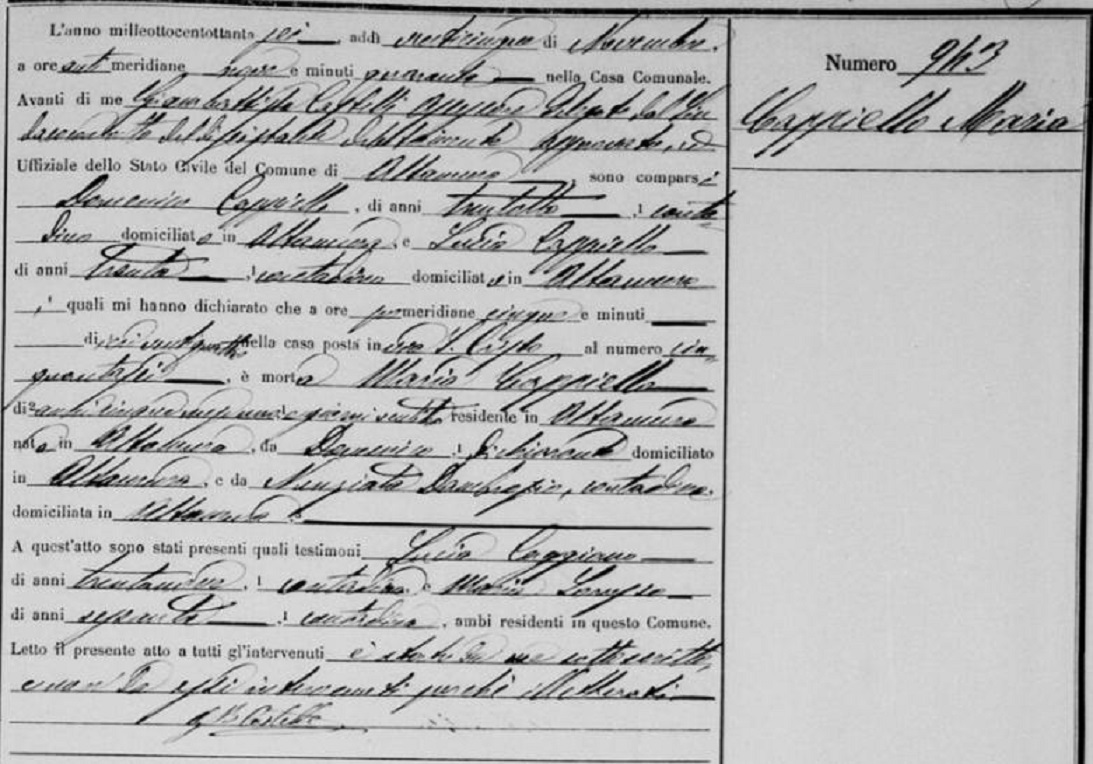 L'anno milleottocentottanta sei, addì venticinque di Novembre,
a ore anti meridiane nove e minuti quaranta nella Casa Comunale.
Avanti di me Giambattista Castelli
debitamente approvato, ed
Uffiziale dello Stato Civile del Comune di Altamura, sono comparsi
Domenico Cappiello, di anni trentotto, conta
dino domiciliato in Altamura, e Lucia Cappiello
di anni trenta, contadina domiciliata in Altamura
, i quali mi hanno dichiarato che a ore pomeridiane cinque e minuti
di nella casa posta in al numero cin
quantasei, è morta Maria Cappiello
di anni cinque residente in Altamura
nata in Altamura, da Domenico, dichiarante domiciliato
in Altamura, e da Nunziata Dambrosio, contadina,
domiciliata in Altamura
A quest'atto sono stati presenti quali testimoni Lucia Caggiano
di anni contadina e Maria
di anni contadina, ambi residenti in questo Comune.
Letto il presente atto a tutti gl'intervenuti è stato da me sottoscritto,
e non da essi intervenuti perché illetterati
GB Castelli
Numero 963
Cappiello Maria